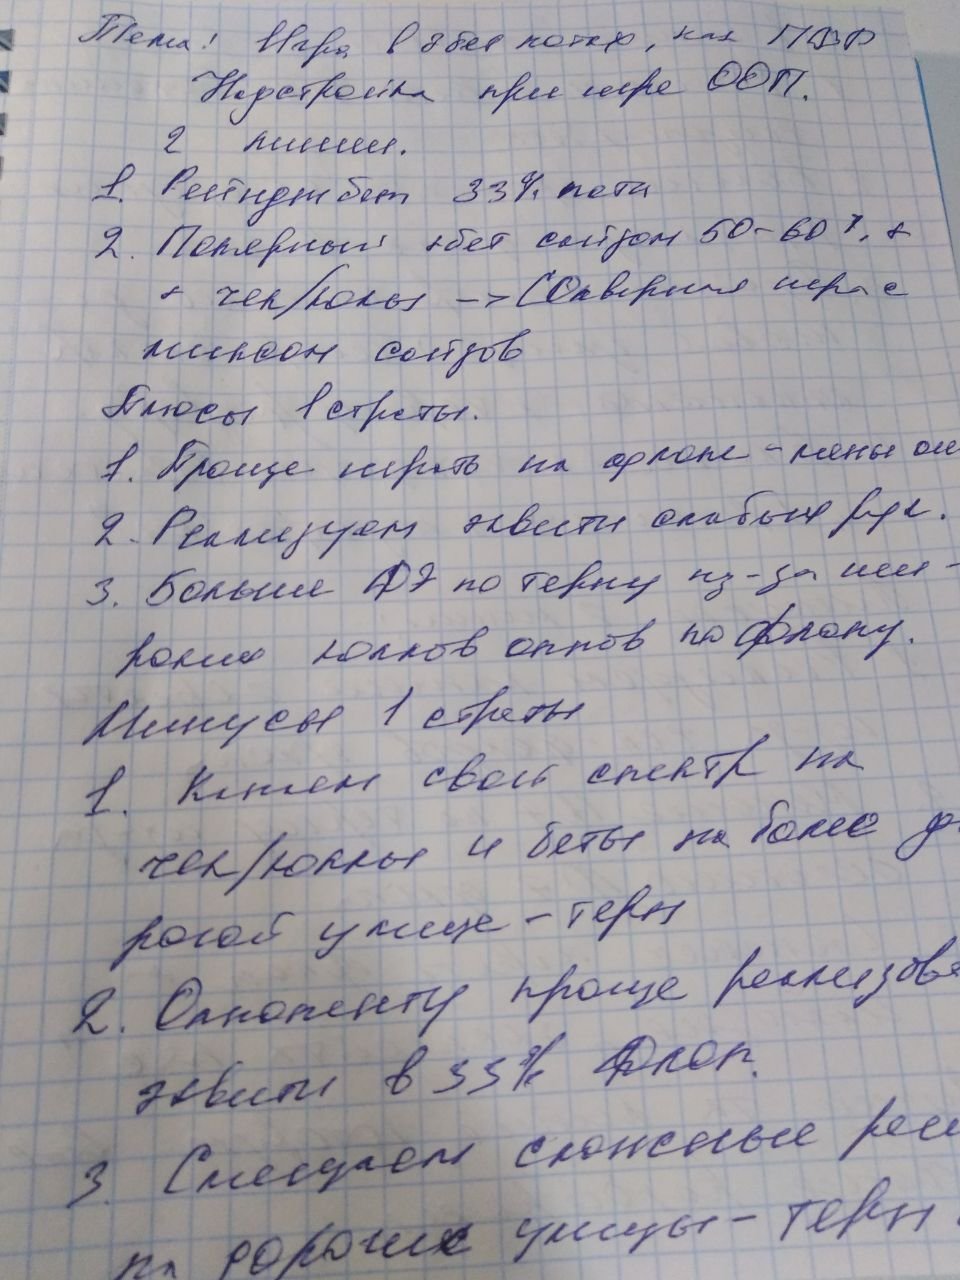 Тема: Игра в 3бет потах, как ПФР
Надстройка при игре ООП.
2 линии.
1. Рейнджбет 33% пота
2. Полярный +бет сайзом 50-60%, +
+ чек/коллы -> Полярная игра с
миксом сайзов
Плюсы 1 страты.
1. Проще играть на флопе - меньше
2. Реализуем эквити слабых рук.
3. Больше ФЭ по терну из-за ши-
роких коллов оппов по флопу.
Минусы 1 страты
1. Катаем свой спектр на
чек/коллы и беты на более до-
рогой улице - терн
2. Оппоненту проще реализовать
эквити в 33% флоп.
3. Смещаем сложные реш
на дорогие улицы - терн